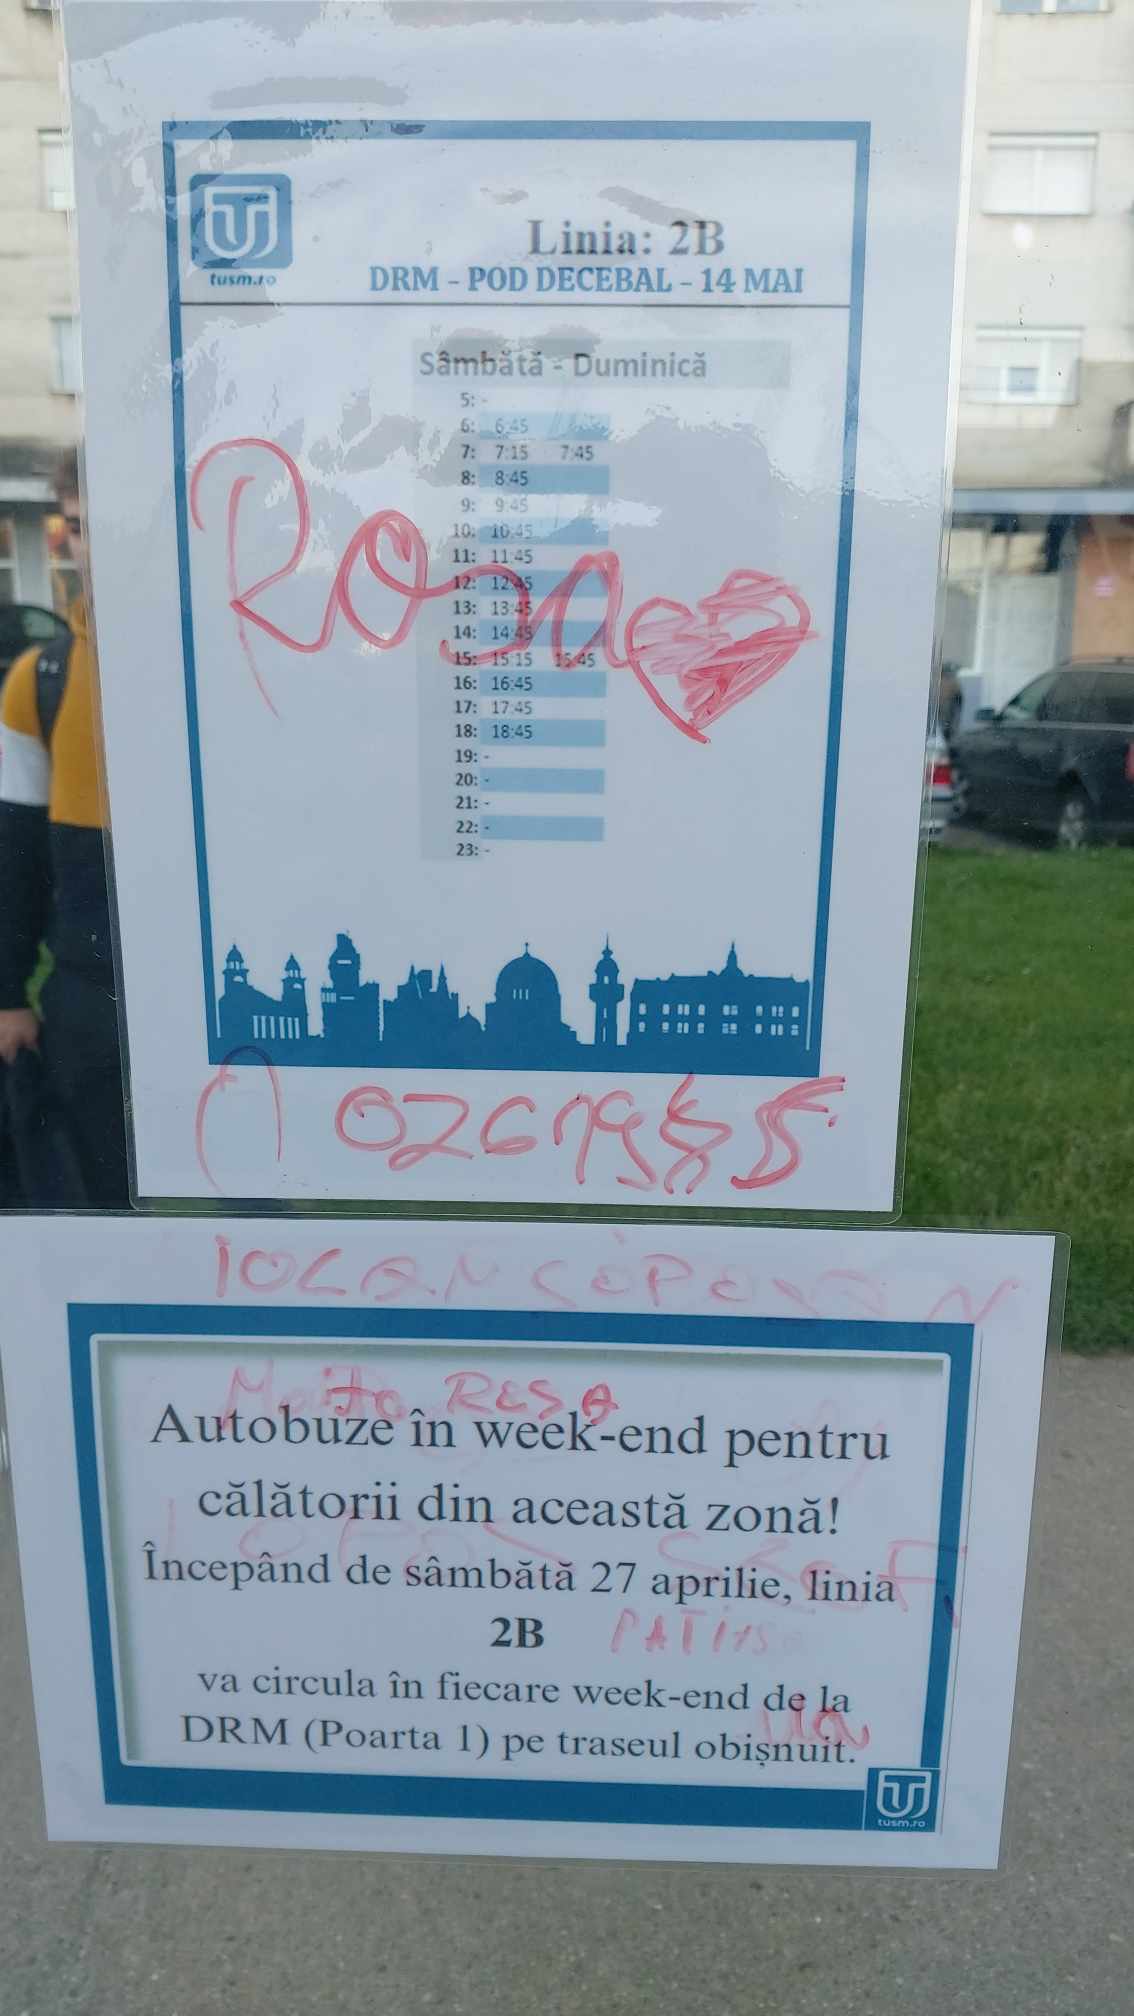 tusm.ro
Linia: 2B
DRM - POD DECEBAL - 14 MAI
Sâmbătă - Duminică
5: -
6: 6:45
7: 7:15 7:45
8: 8:45
9: 9:45
10: 10:45
11: 11:45
12: 12:45
13: 13:45
14: 14:45
15: 15:15 15:45
16: 16:45
17: 17:45
18: 18:45
19: -
20: -
21: -
22: -
23: -
Rosa
RESA
Autobuze în week-end pentru
călătorii din această zonă!
Începând de sâmbătă 27 aprilie, linia
2B
va circula în fiecare week-end de la
DRM (Poarta 1) pe traseul obișnuit.
tusm.ro